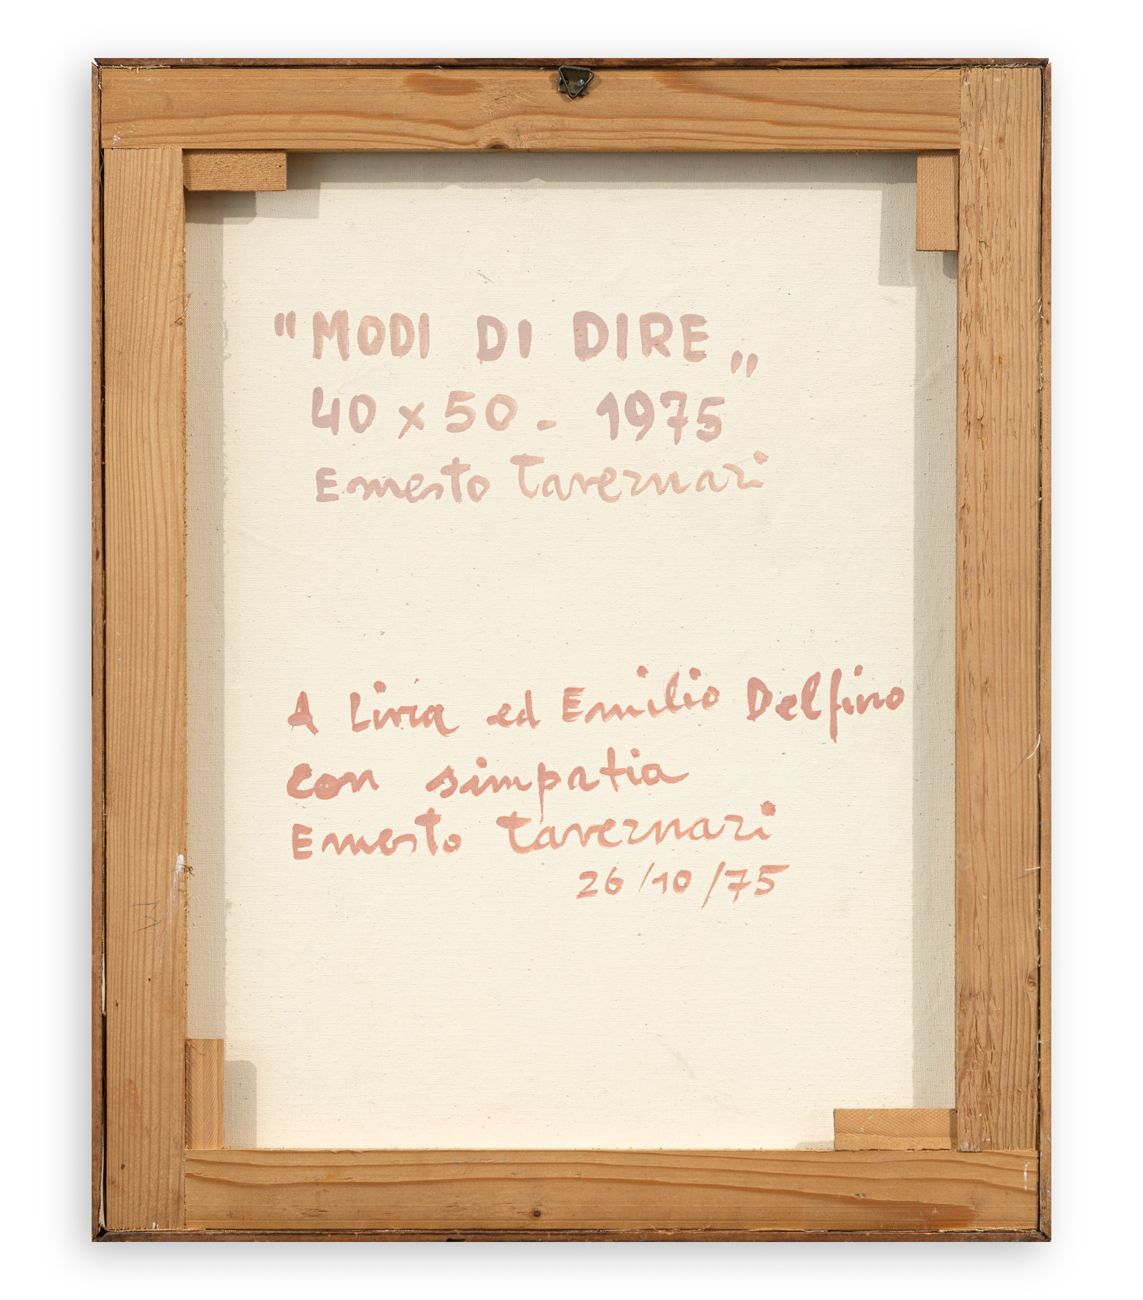 "MODI DI DIRE"
40 x 50 - 1975
Ernesto Tavernari
A Livia ed Emilio Delfino
con simpatia
Ernesto Tavernari
26/10/75